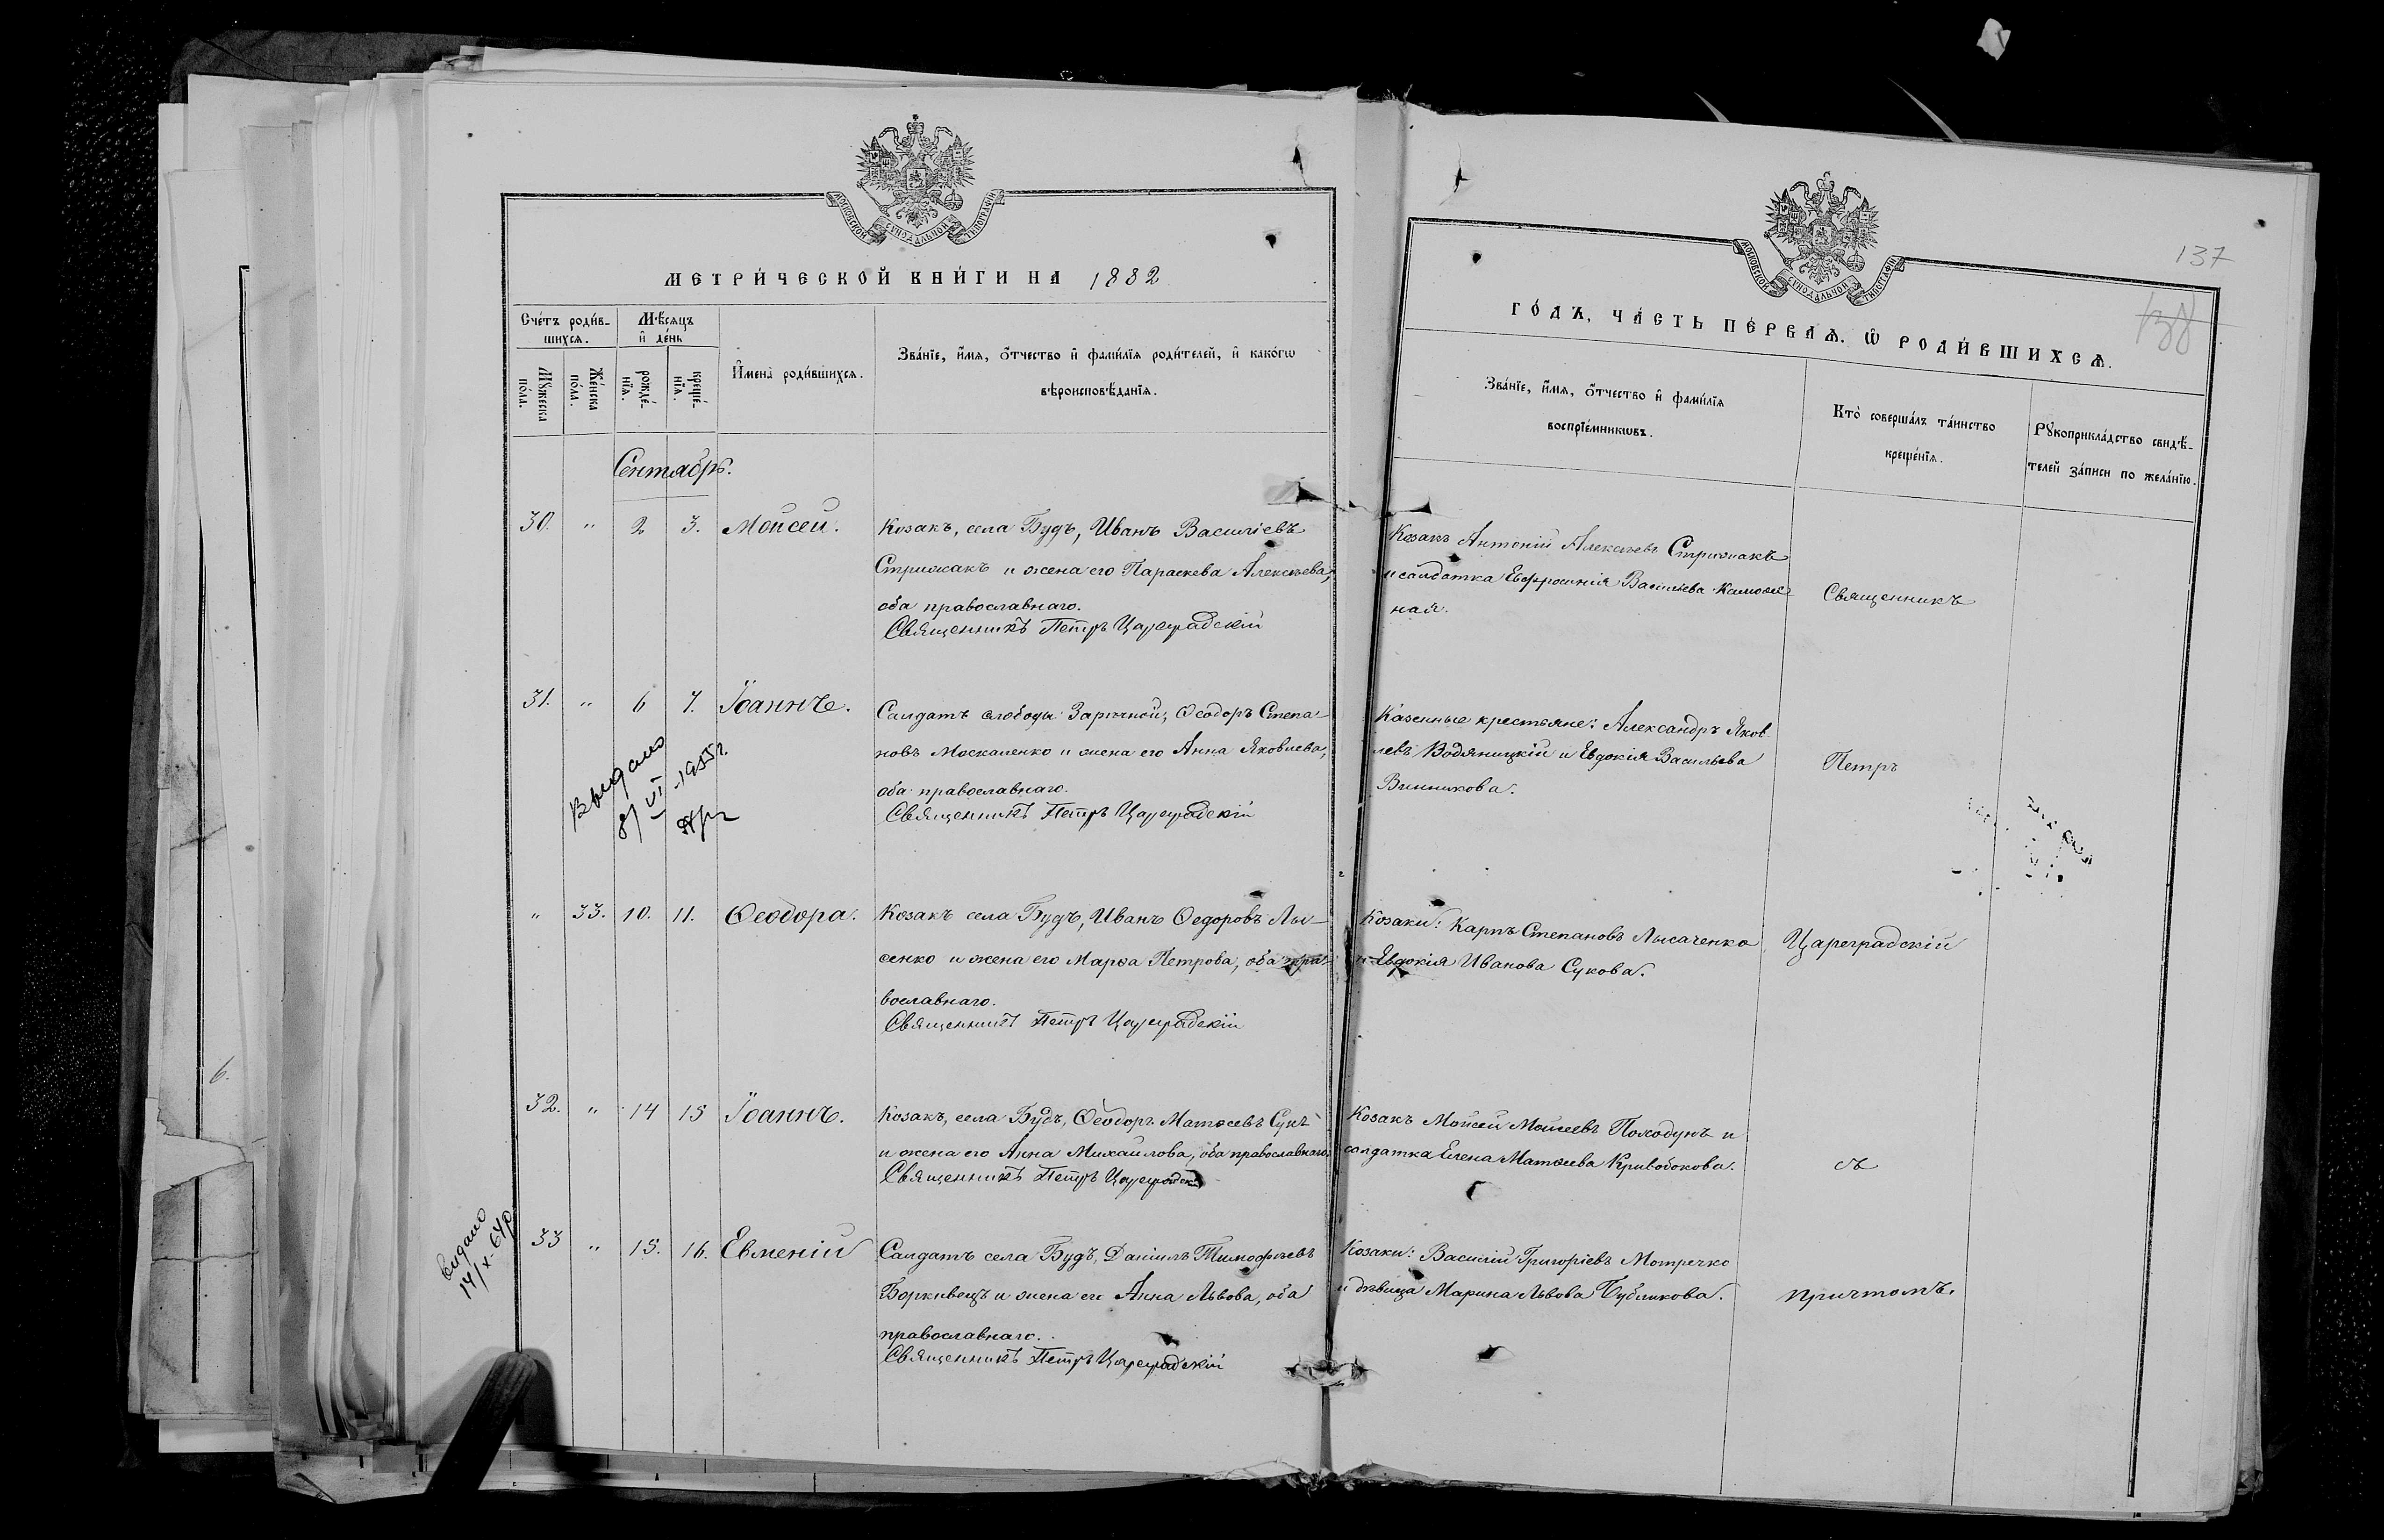 МОСКОВСКОЙ СѴНОДАЛЬНОЙ ТИПОГРАФІИ
МЕТРИ́ЧЕСКОЙ КНИ́ГИ НА 1882
Сче́тъ роди́в-
шихсѧ.
Мѣ́сѧцъ
и҆ де́нь
Мꙋ́жеска
по́ла.
Же́нска
по́ла.
рожде́-
нїѧ.
креще́-
нїѧ.
И҆мена̀ роди́вшихсѧ.
Зва́нїе, и҆́мѧ, ѻ҆́тчество и҆ фами́лїѧ роди́телей, и҆ како́гѡ
вѣроисповѣ́данїѧ.
Сентябрь.
30. " 2 3. Моисей. Козакъ, села Будъ, Иванъ Василіевъ
Стрижакъ и жена его Параскева Алексѣева,
оба православнаго.
Священникъ Петръ Цареградскій
31. " 6 7. Іоаннъ. Салдатъ слободы Зарѣчной, Ѳеодоръ Степа-
новъ Москаленко и жена его Анна Яковлева,
оба православнаго.
Священникъ Петръ Цареградскій
Выдано
8/VI-1955г.
" 33. 10. 11. Ѳеодора. Козакъ села Будъ, Иванъ Ѳедоровъ Лы-
сенко и жена его Марѳа Петрова, оба пра-
вославнаго.
Священникъ Петръ Цареградскій
32. " 14 15 Іоаннъ. Козакъ, села Будъ, Ѳеодоръ Матѳеевъ Сукъ
и жена его Анна Михаилова, оба православнаго.
Священникъ Петръ Цареградскій
видано
14/X-64р
33 " 15. 16. Евменій Салдатъ села Будъ, Даніилъ Тимофѣевъ
Борковецъ и жена его Анна Львова, оба
православнаго.
Священникъ Петръ Цареградскій
6.
137
138
МОСКОВСКОЙ СѴНОДАЛЬНОЙ ТИПОГРАФІИ
ГО́ДЪ, ЧА́СТЬ ПЕ́РВАѦ. Ѡ҆ РОДИ́ВШИХСѦ.
Зва́нїе, и҆́мѧ, ѻ҆́тчество и҆ фами́лїѧ
воспрїе́мникѡвъ.
Кто̀ соверша́лъ та́инство
креще́нїѧ.
Рꙋкоприкла́дство свидѣ́-
телей за́писи по жела́нїю.
Козакъ Антоній Алексѣевъ Стрижакъ
и салдатка Евфросинія Василіева
ная.
Казенные крестьяне: Александръ Яков-
левъ Водяницкій и Евдокія Васильева
Винникова.
Козаки: Карпъ Степановъ Лысаченко
и Евдокія Иванова Сукова.
Козакъ Моисей Моисеевъ Походунъ и
салдатка Елена Матѳеева Кривобокова.
Козаки: Василій Григоріевъ Мотречко
и дѣвица Марина Львова Бубликова.
Священникъ
Петръ
Цареградскій
съ
причтомъ.